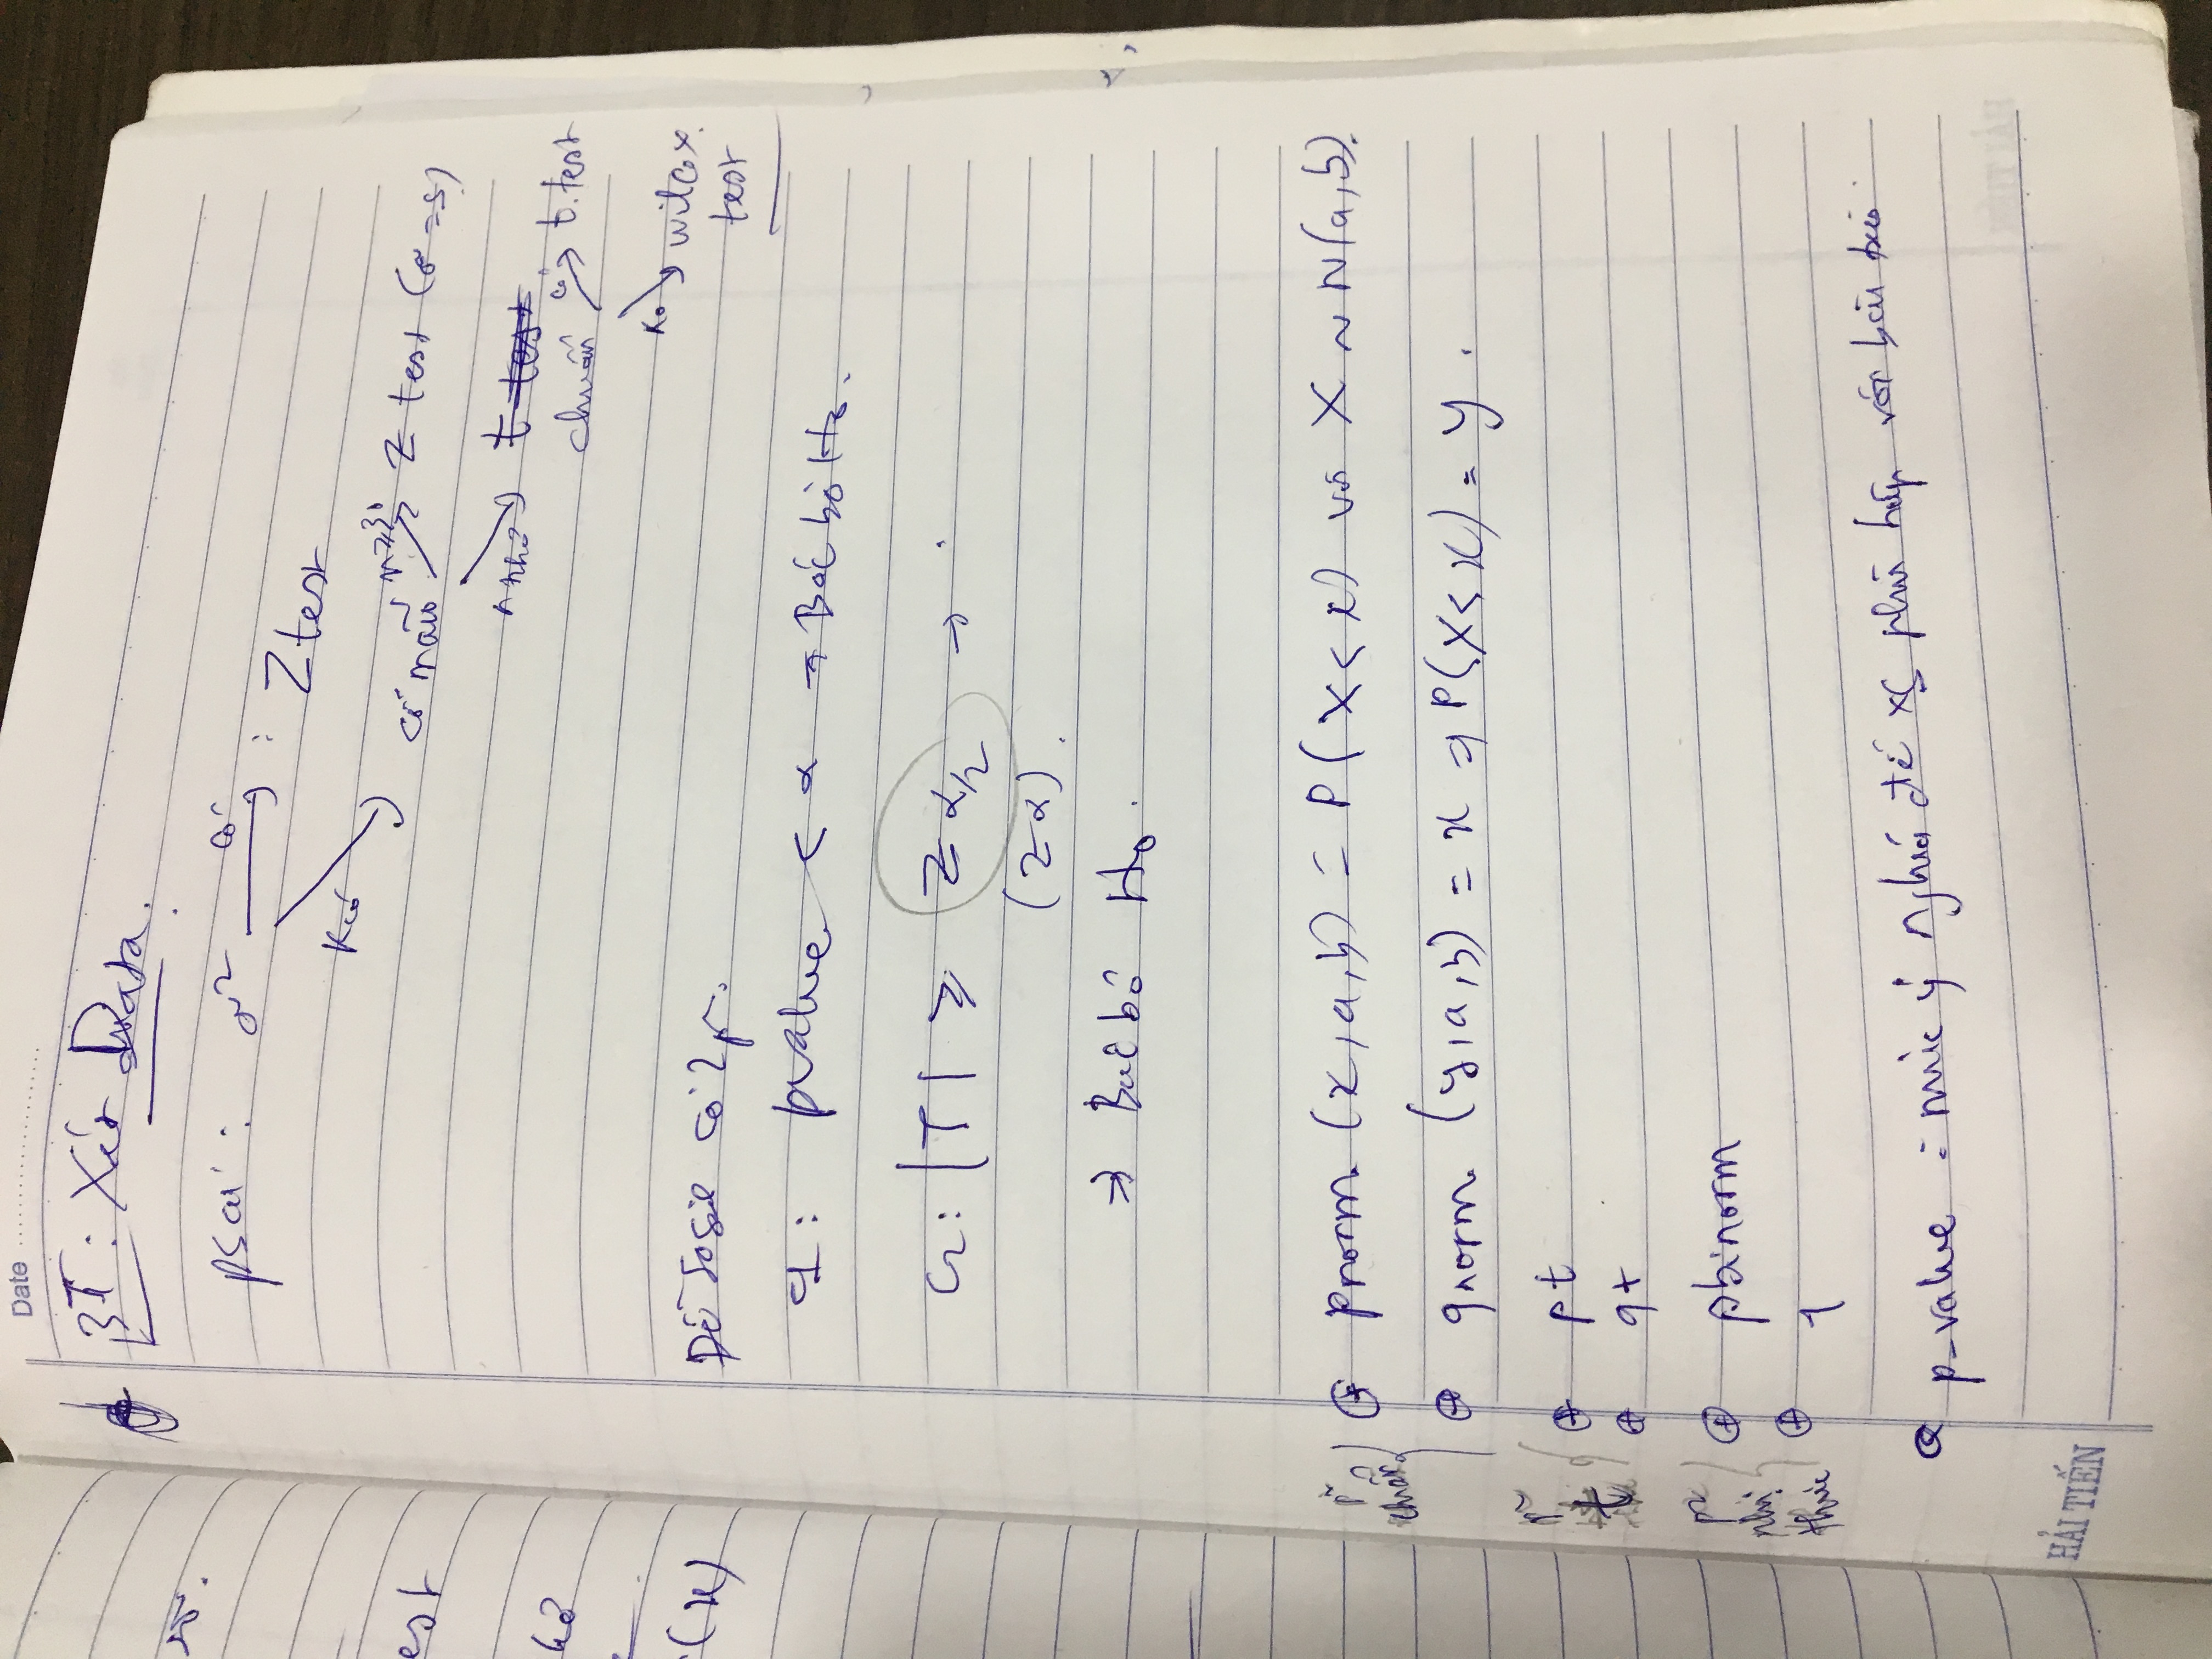 Date
BT: Xét Data.
psai: σ² có → : Z test
Kcó
cỡ mẫu n≥30 → Z test (σ=s)
n nhỏ → t test
chuẩn có → t.test
Ko → wilcox.
test
Để so sánh có 2 p².
C1: pvalue < α → Bác bỏ H₀.
C2: |T| ≥ Z α/2 →
(Z α).
⇒ Bác bỏ H₀.
p² chuẩn
⊕ pnorm (x, a, b) = P(X < x) với X ~ N(a, b).
⊕ qnorm (y, a, b) = x ⇒ P(X < x) = y.
p² t
⊕ pt
⊕ qt
p² nhị thức
⊕ pbinorm
⊕ q
p-value : mức ý nghĩa để xs phù hợp với bài
HẢI TIẾN
est
(x)